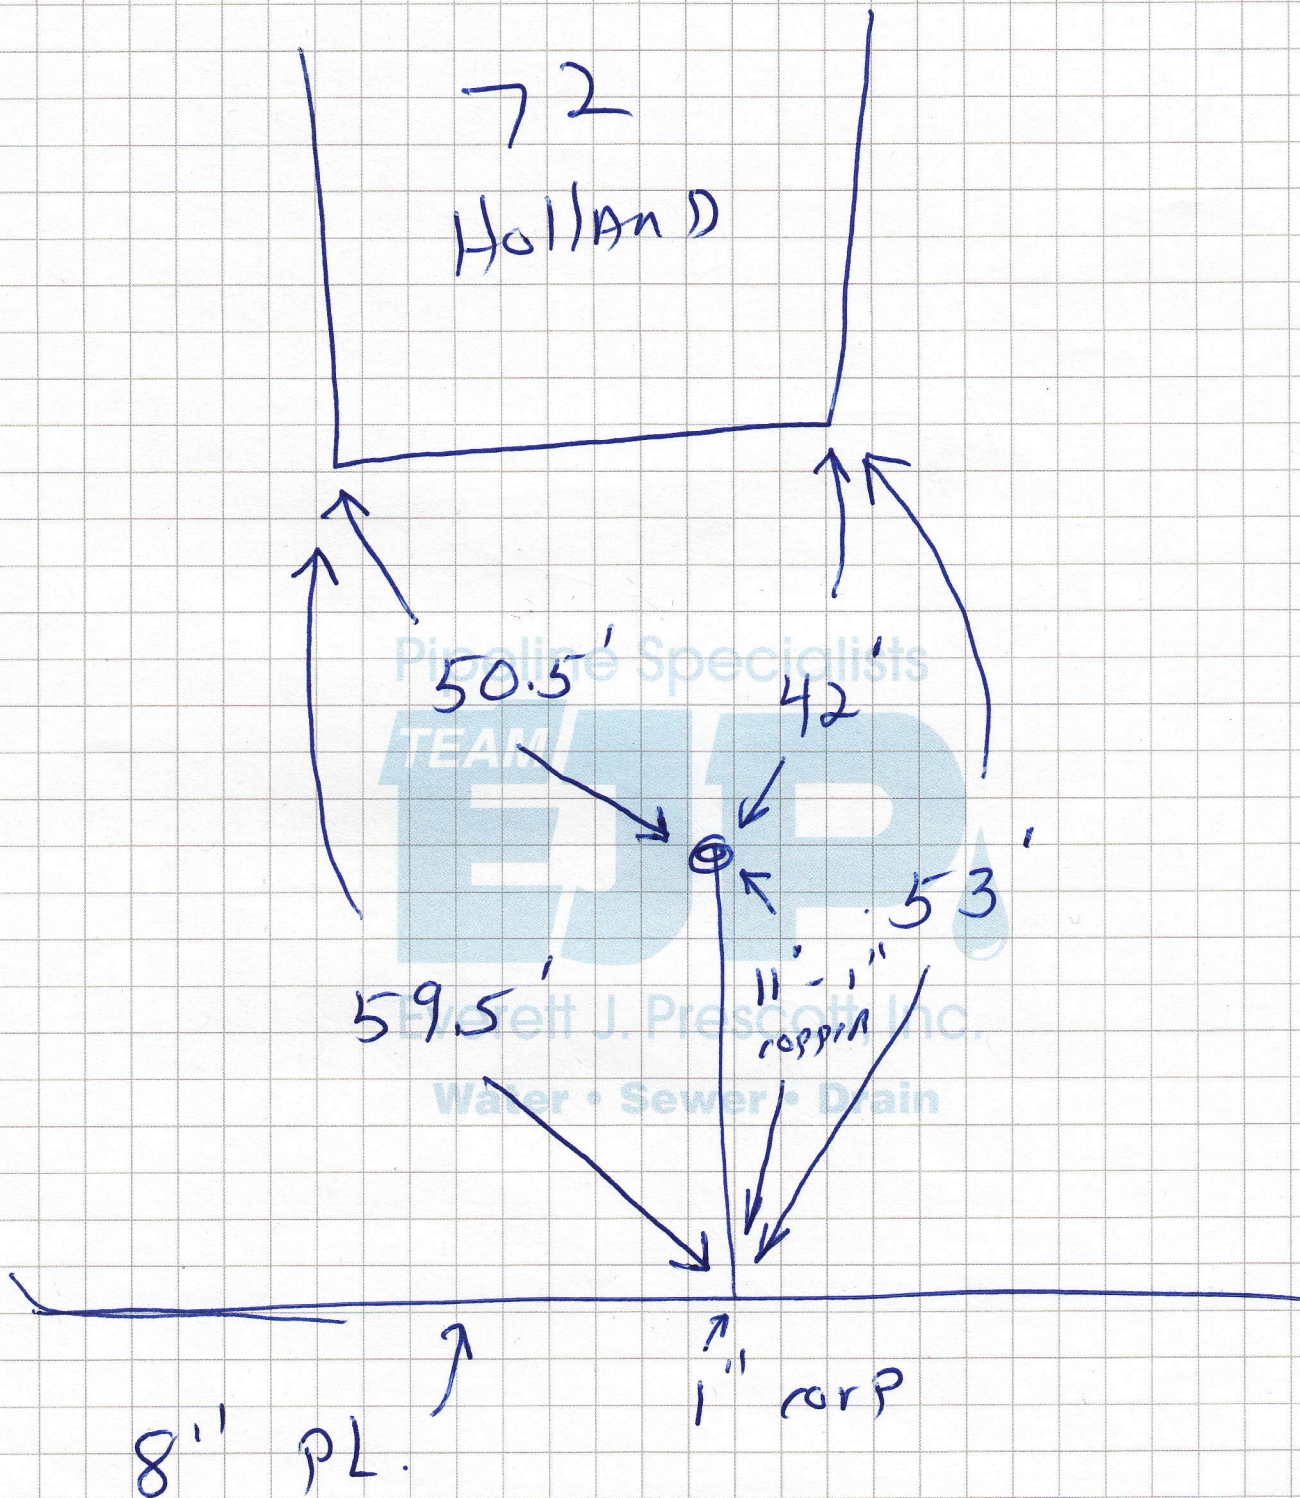 72
HollAnD
Pipeline Specialists
50.5'
42'
TEAM
EJP
53'
11' - 1"
59.5'
Everett J. Prescott, Inc.
Water • Sewer • Drain
1" corp
8" PL.